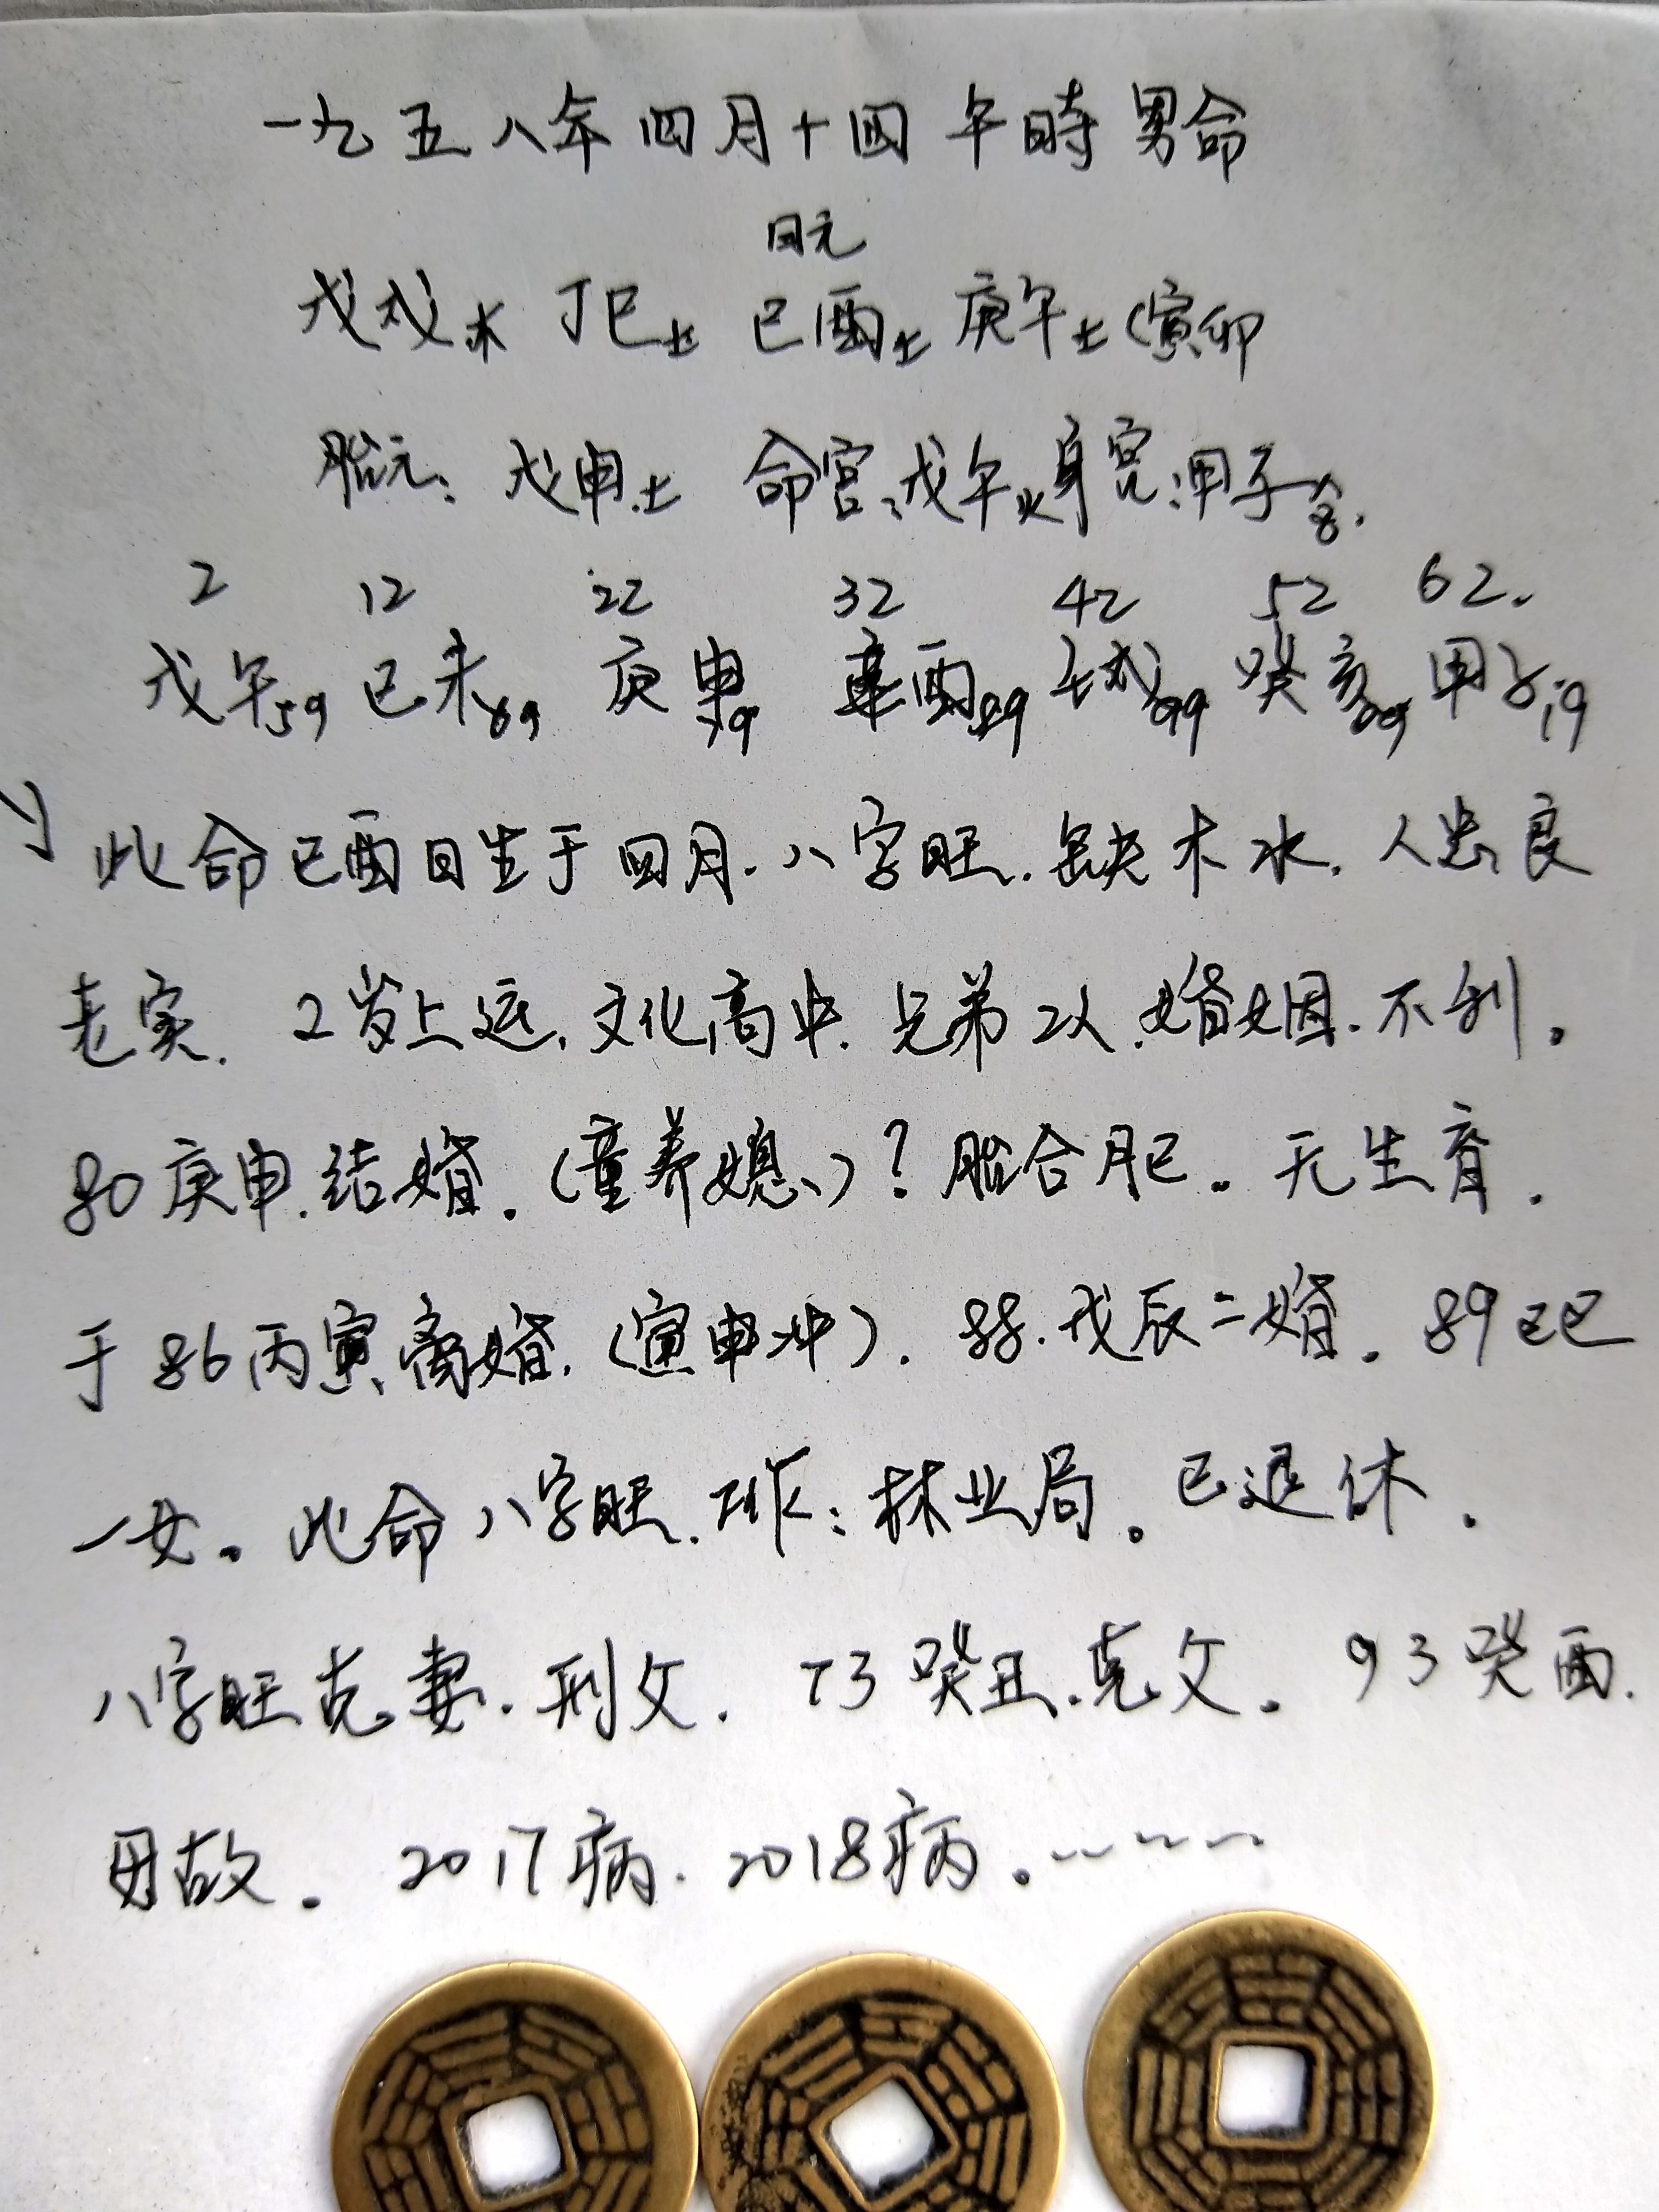 一九五八年四月十四午時男命
日元
戊戌木 丁巳土 己酉土 庚午土(寅卯
胎元:戊申土 命宫:戊午火身宫:甲子金.
2 12 22 32 42 52 62.
戊午59 己未69 庚申79 辛酉89 壬戌99 癸亥09 甲子19
此命己酉日生于四月.八字旺.缺木水.人忠良
老实. 2岁上运.文化高中.兄弟2人.婚姻.不利。
80庚申.结婚.(童养媳)?胎合月巳。无生育.
于86丙寅离婚.(寅申冲). 88.戊辰二婚. 89己巳
一女。此命八字旺.工作:林业局。已退休.
八字旺克妻.刑父. 73癸丑.克父. 93癸酉.
母故. 2017病. 2018病。-----